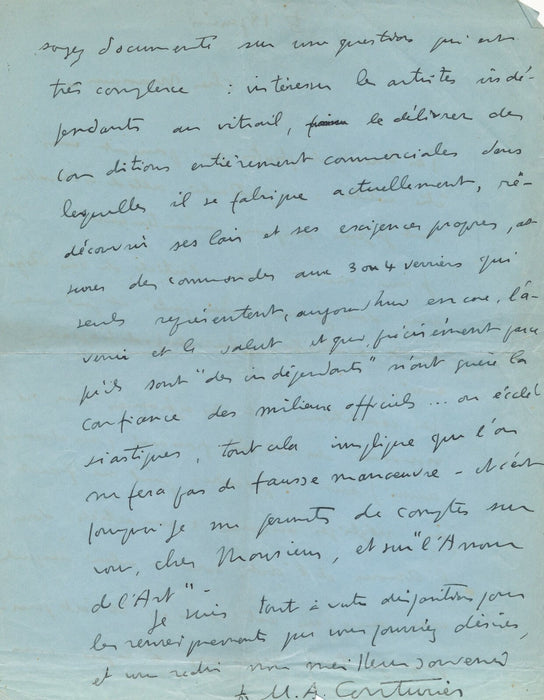 soyez documenté sur une question qui est
très complexe : intéresser les artistes indé-
pendants au vitrail, le délivrer des
conditions entièrement commerciales dans
lesquelles il se fabrique actuellement, re-
découvrir ses lois et ses exigences propres, as-
surer des commandes aux 3 ou 4 verriers qui
seuls représentent, aujourd'hui encore, l'a-
venir et le salut et qui, précisément parce
qu'ils sont "des indépendants" n'ont guère la
confiance des milieux officiels ... ou ecclé
siastiques, tout cela implique que l'on
ne fera pas de fausse manœuvre - et c'est
pourquoi je me permets de compter sur
vous, cher Monsieur, et sur "l'Amour
de l'Art" -
Je suis tout à votre disposition pour
les renseignements que vous pourriez désirer,
et vous redis mon meilleur souvenir
M. A. Couturier